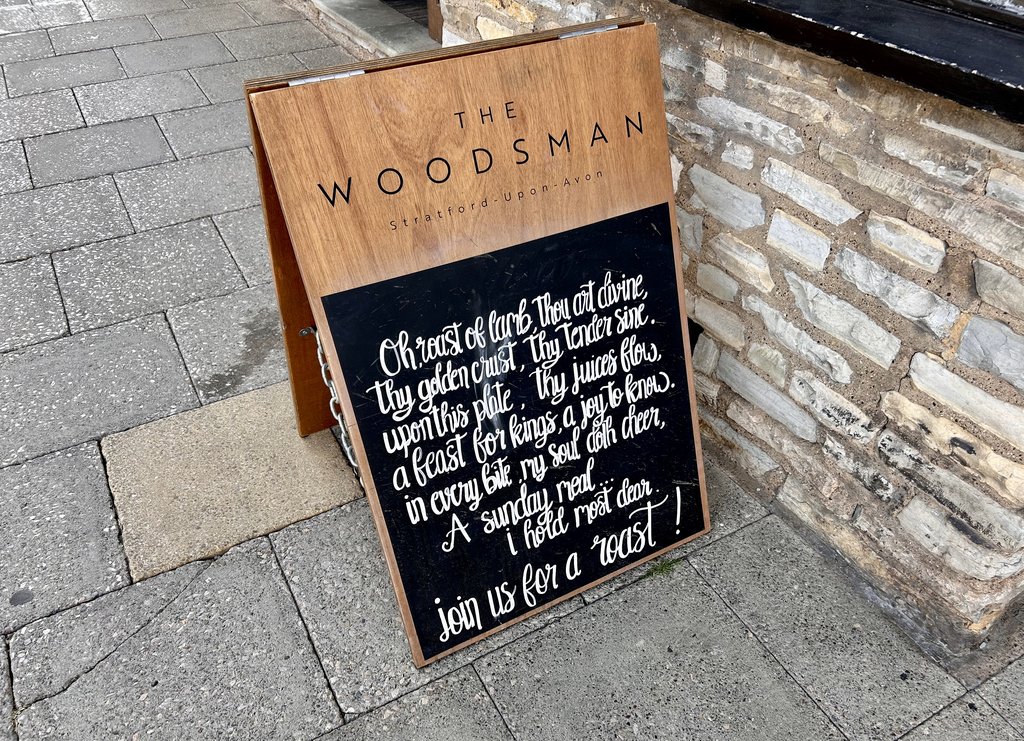 THE
WOODSMAN
Stratford-Upon-Avon
Oh roast of lamb Thou art divine,
thy golden crust, Thy Tender sine.
upon this plate, Thy juices flow,
a feast for kings, a joy to know.
in every bite my soul doth cheer,
A sunday meal...
i hold most dear.
join us for a roast!